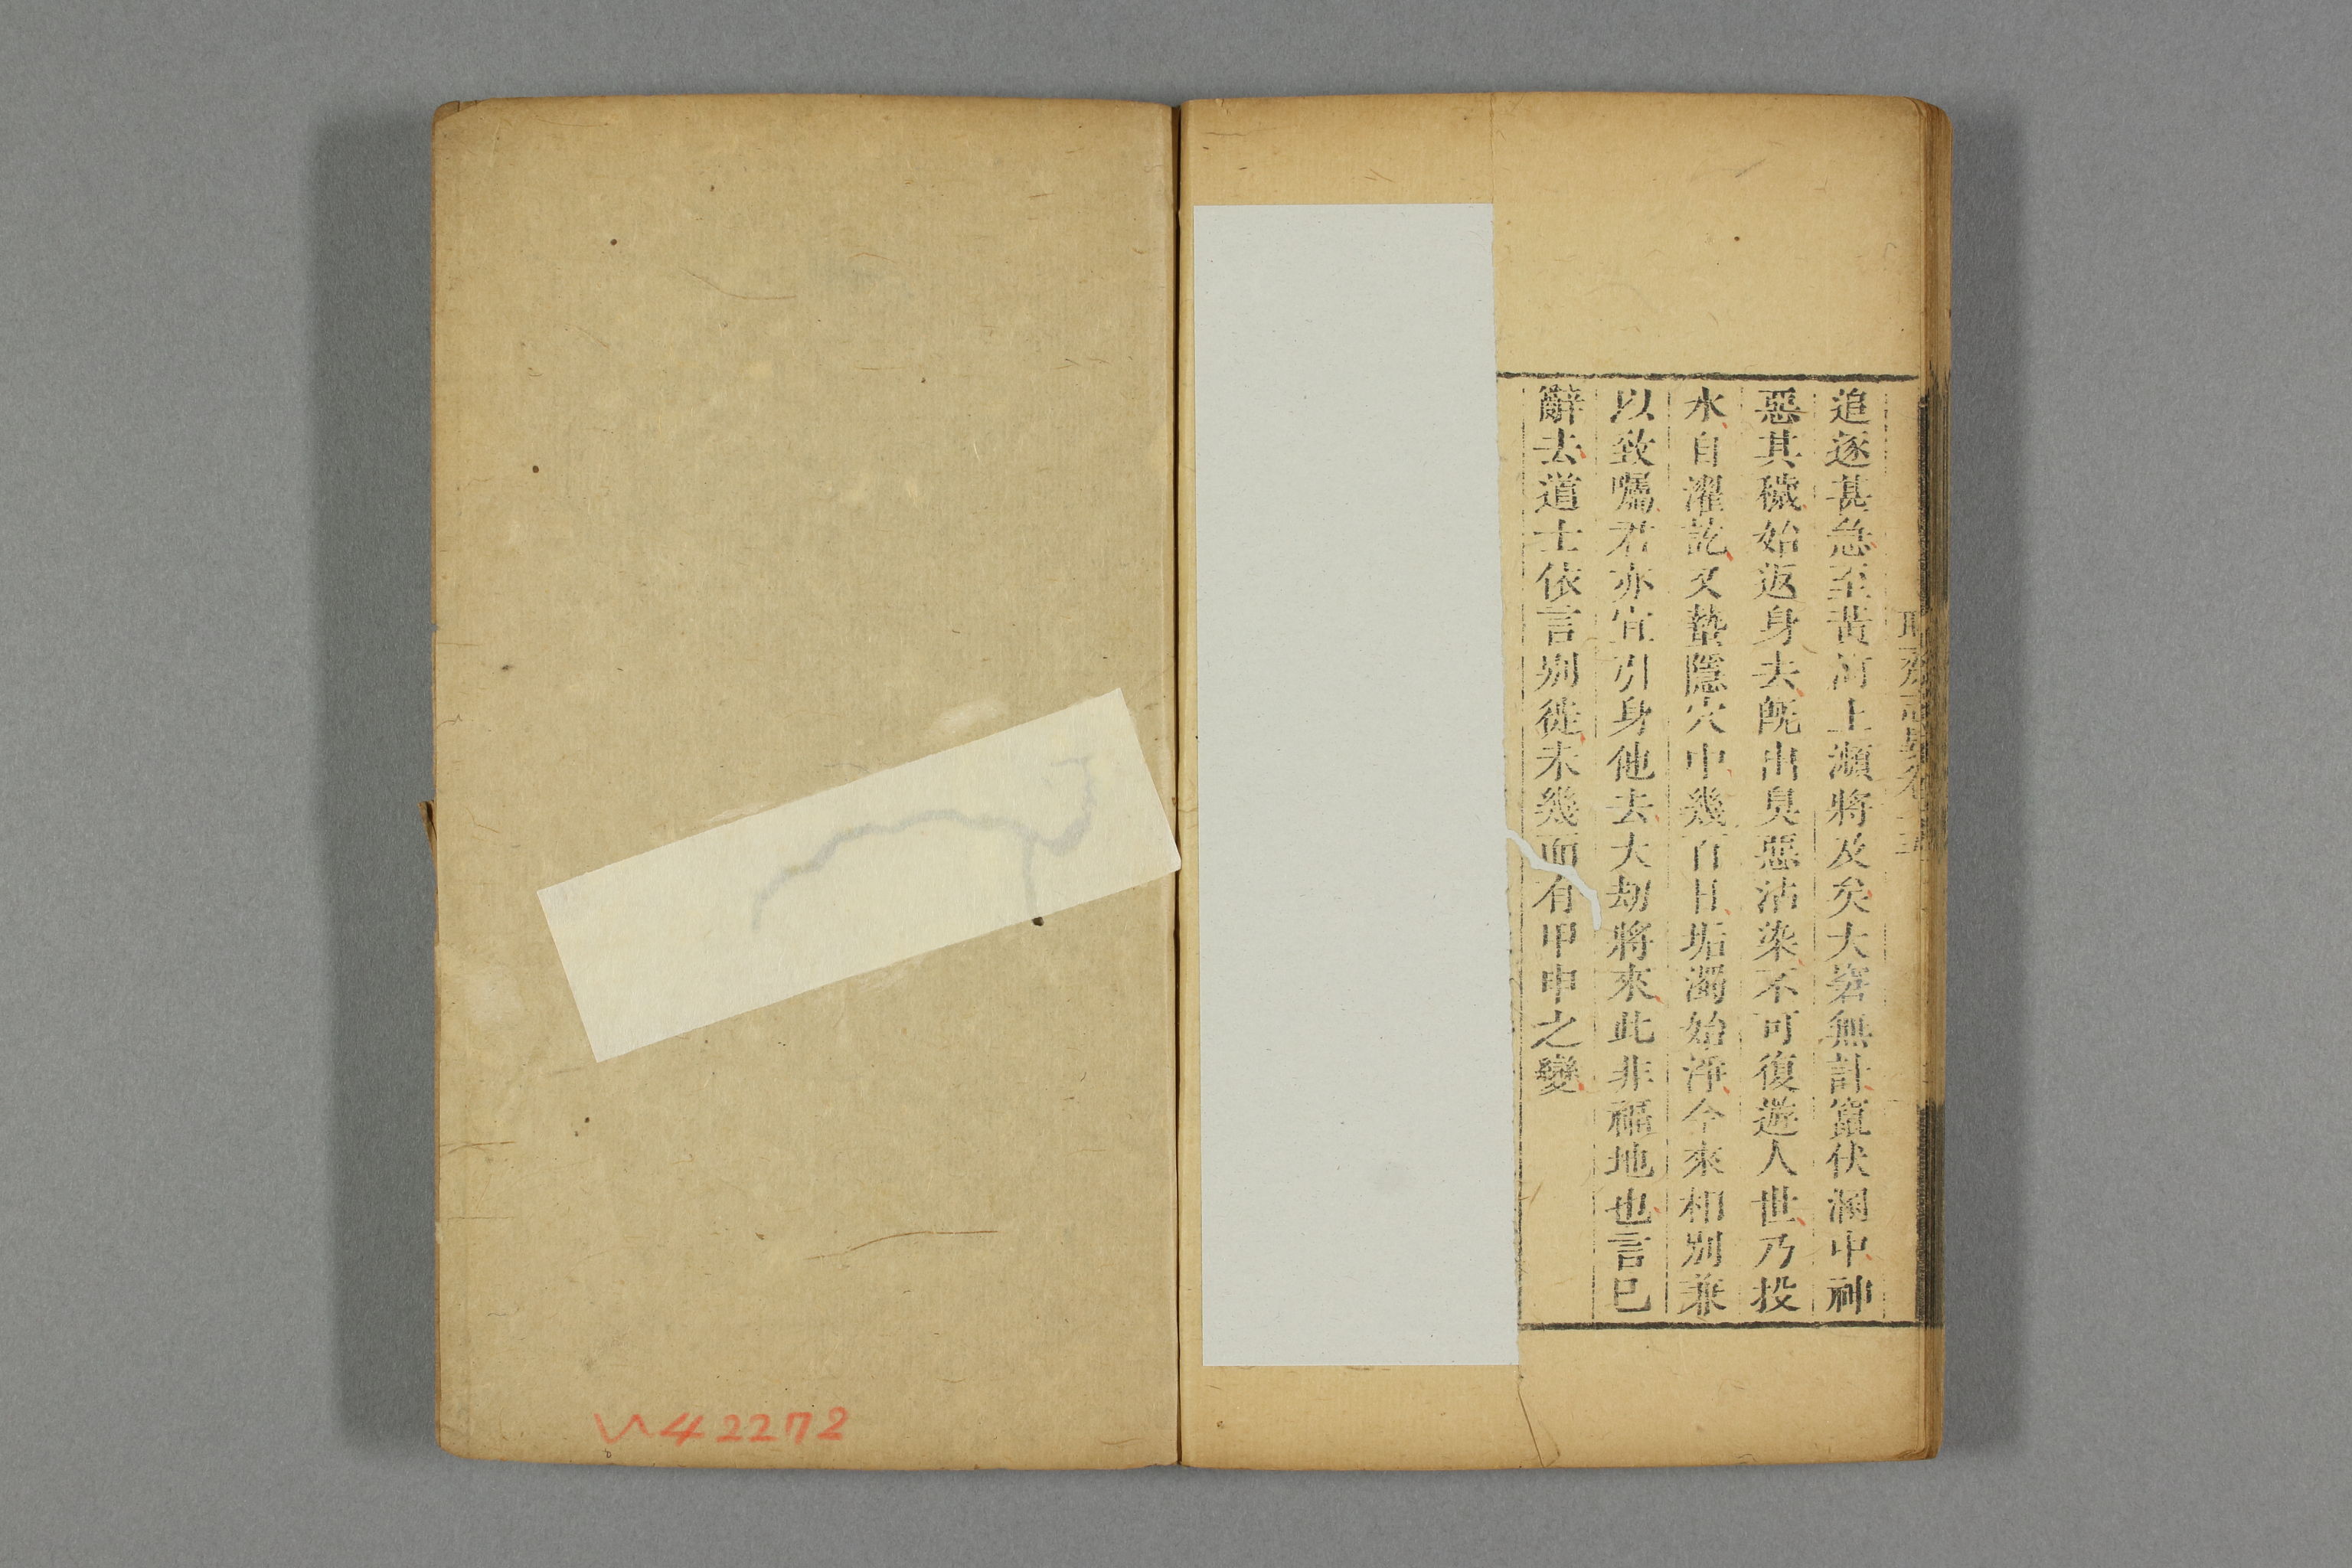 追逐甚急至黃河上瀕將及矣大窘無計竄伏溷中神
惡其穢始返身去旣出臭惡沾染不可復遊人世乃投
水自濯訖又蟄隱穴中幾百日垢濁始淨今來相別兼
以致囑君亦宜引身他去大劫將來此非福地也言已
辭去道士依言別徙未幾而有甲申之變
42272